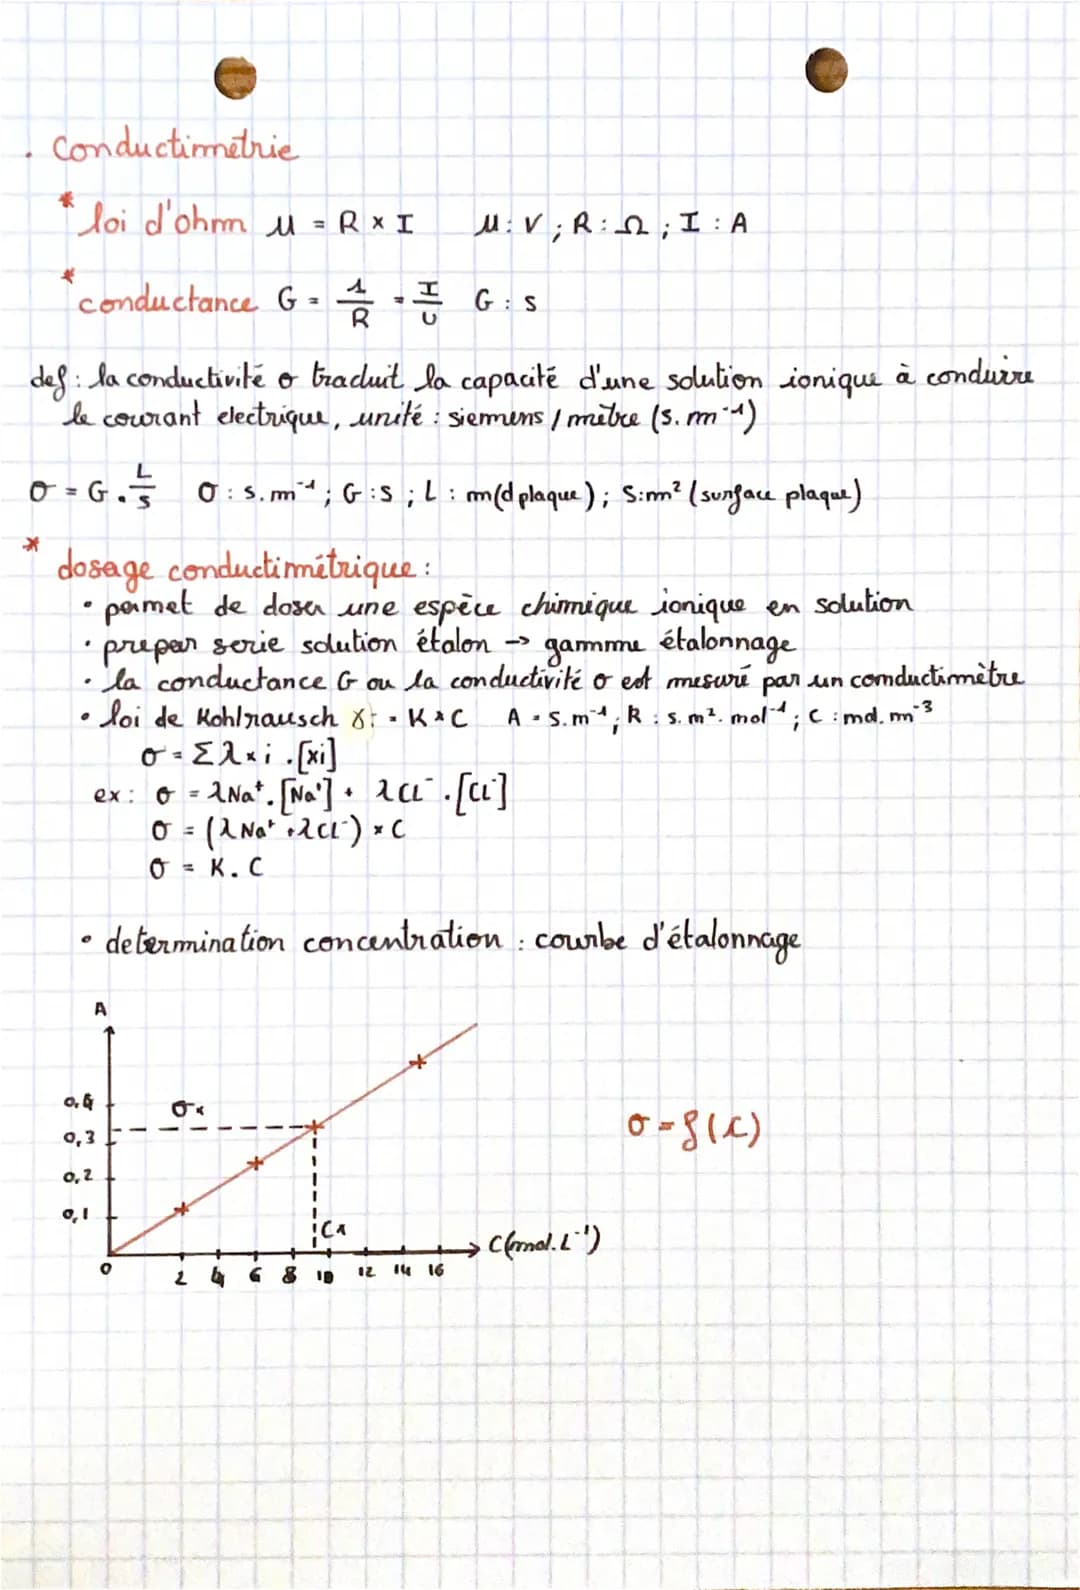 . Conductimétrie
* loi d'ohm U = R x I U : V ; R : Ω ; I : A
* conductance G = 1/R = I/U G : S
def : la conductivité σ traduit la capacité d'une solution ionique à conduire
le courant electrique, unité : siemens / mètre (S.m⁻¹)
σ = G . L/S σ : S.m⁻¹ ; G : S ; L : m (d plaque) ; S : m² (surface plaque)
* dosage conductimétrique :
• permet de doser une espèce chimique ionique en solution
• preparer serie solution étalon → gamme étalonnage
• la conductance G ou la conductivité σ est mesuré par un conductimètre
• loi de Kohlrausch = K x C A = S.m⁻¹ ; R : S.m².mol⁻¹ ; C : mol.m⁻³
σ = Σ λxi . [xi]
ex : σ = λNa⁺ . [Na⁺] + λCl⁻ . [Cl⁻]
σ = (λNa⁺ + λCl⁻) x C
σ = K . C
• determination concentration : courbe d'étalonnage
A
0,4
σx
0,3
σ = f(C)
0,2
0,1
C1
C(mol.L⁻¹)
0 2 4 6 8 10 12 14 16